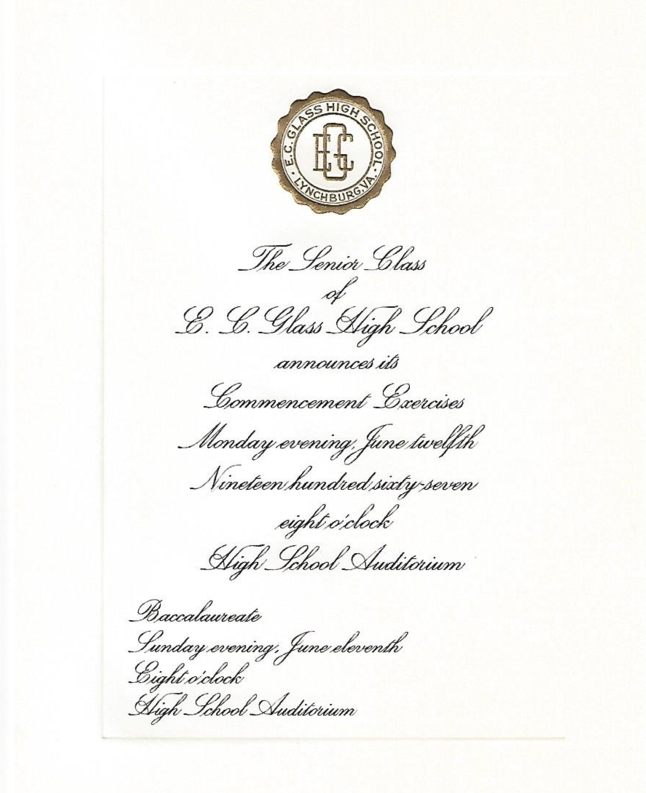 E.C. GLASS HIGH SCHOOL
EGC
LYNCHBURG, VA.
The Senior Class
of
E. C. Glass High School
announces its
Commencement Exercises
Monday evening, June twelfth
Nineteen hundred sixty-seven
eight o'clock
High School Auditorium
Baccalaureate
Sunday evening, June eleventh
Eight o'clock
High School Auditorium